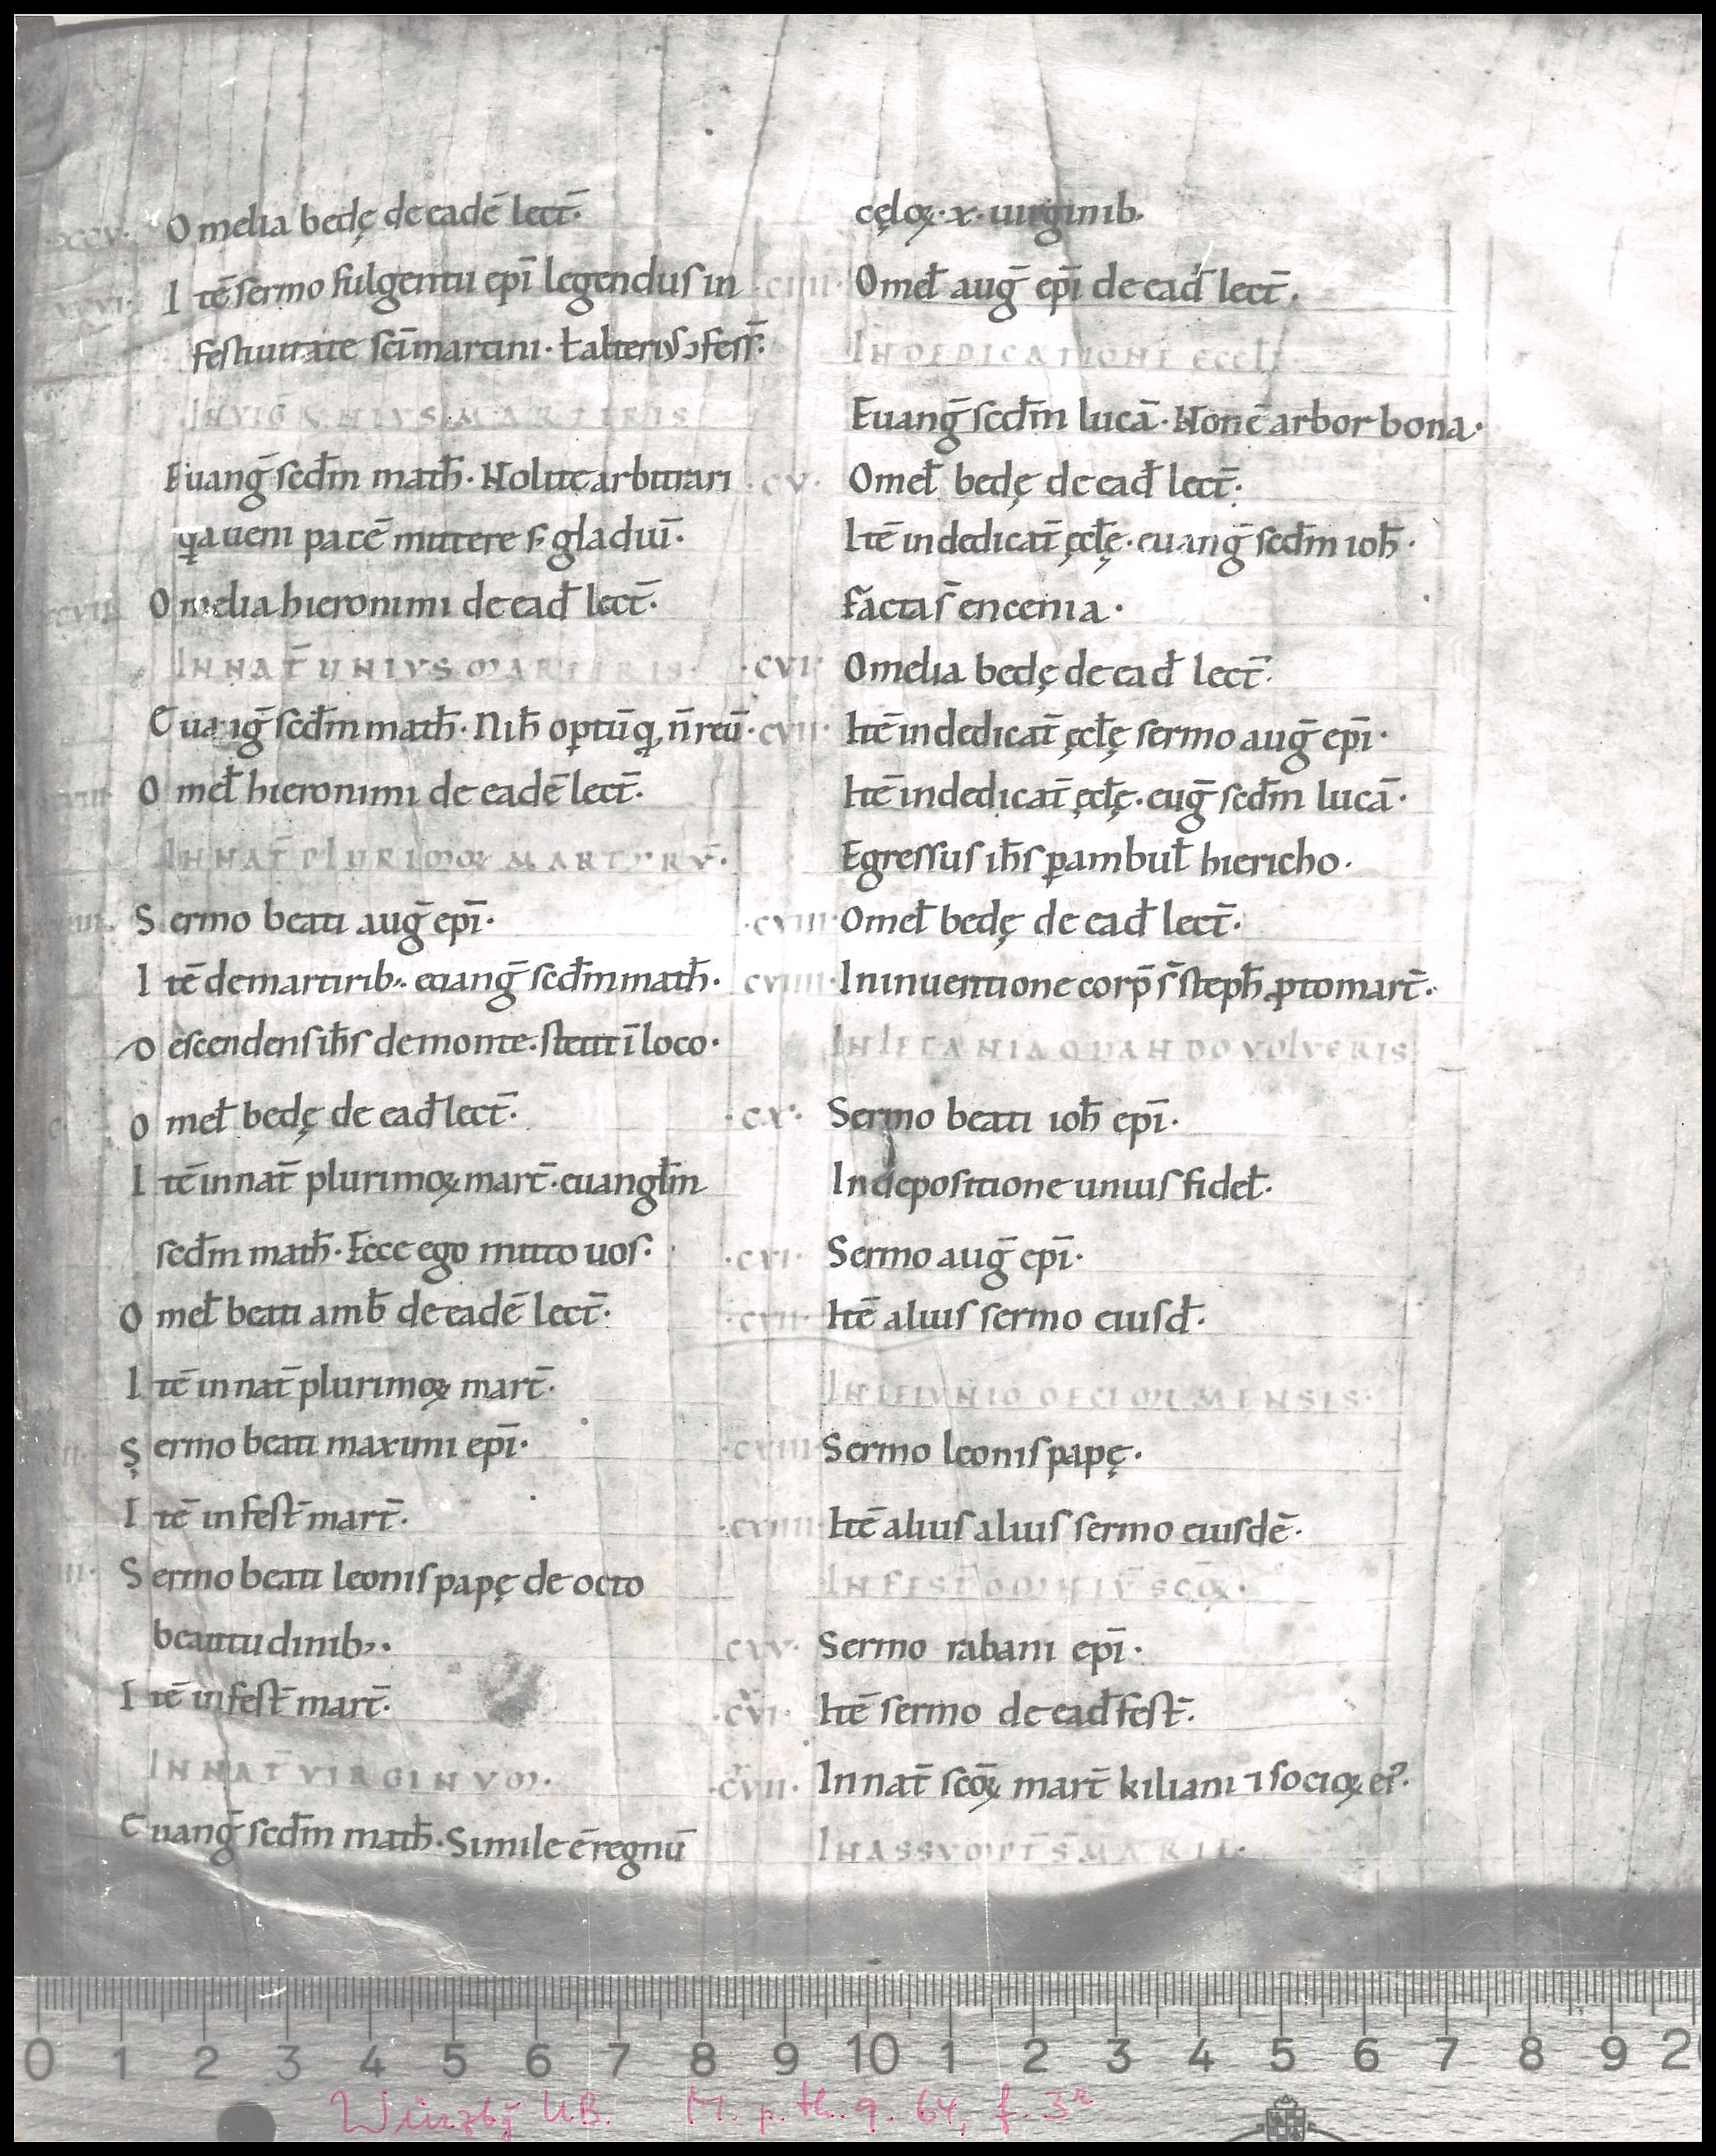 ·xcv· Omelia bedę de eadē lect̄·
Itē sermo fulgentii epī legendus in
festiuitate scī martini· ł alterius ↄfess̄·
IN VIG̅ UNIVS MARTIRIS
Euang̅ scđm math̄· Nolite arbitrari
q̢a ueni pacē mittere s; gladiū·
Omelia hieronimi de ead̄ lect̄·
IN NAT̄ UNIVS MARTIRIS·
Euang̅ scđm math̄· Nih̄ optū q̢ n̄ reū·
Omel̄ hieronimi de eadē lect̄·
IN NAT̄ PLURIMOꝜ MARTYRV̄·
Sermo beati aug̅ epī·
Itē de martirib; euang̅ scđm math̄·
Descendens ih̄s de monte· stetit ī loco·
Omel̄ bedę de ead̄ lect̄·
Itē in nat̄ plurimoꝝ mart̄· euangl̄m
scđm math̄· Ecce ego mitto uos·
Omel̄ beati amb̄ de eadē lect̄·
Itē in nat̄ plurimoꝝ mart̄·
Sermo beati maximi epī·
Itē in fest̄ mart̄·
Sermo beati leonis papę de octo
beatitudinib;·
Itē in fest̄ mart̄·
IN NAT̄ VIRGINVM·
Euang̅ scđm math̄· Simile ē regnū
cęloꝝ· x· uirginib·
·ciiii· Omel̄ aug̅ epī de ead̄ lect̄·
IN DEDICATIONE ECCL̄
Euang̅ scđm lucā· Non ē arbor bona·
·cv· Omel̄ bedę de ead̄ lect̄·
Itē in dedicat̄ ęcl̄ę· euang̅ scđm ioh̄·
Facta s̄ encenia·
·cvi· Omelia bedę de ead̄ lect̄·
·cvii· Itē in dedicat̄ ęcl̄ę sermo aug̅ epī·
Itē in dedicat̄ ęcl̄ę· eug̅ scđm lucā·
Egressus ih̄s ꝑambul̄ hiericho·
·cviii· Omel̄ bedę de ead̄ lect̄·
cviiii· In inuentione corp̄ s̄ steph̄ ꝓtomart̄·
IN LETANIA QUANDO VOLVERIS
·cx· Sermo beati ioh̄ epī·
In depositione unius fidel̄·
·cxi· Sermo aug̅ epī·
·cxii· Itē alius sermo eiusd̄·
IN IEIVNIO DECIMI MENSIS·
·cxiii· Sermo leonis papę·
·cxiiii· Itē alius alius sermo eiusdē·
IN FEST̄ OMNIV̄ SCŌꝜ·
cxv· Sermo rabani epī·
·cxvi· Itē sermo de ead̄ fest̄·
·cxvii· In nat̄ scōꝝ mart̄ kiliani ⁊ socioꝝ ei᾿·
IN ASSVMPT̄ S̄ MARIE·
0 1 2 3 4 5 6 7 8 9 10 1 2 3 4 5 6 7 8 9 2
Würzbg U.B. M. p. th. q. 64, f. 3r